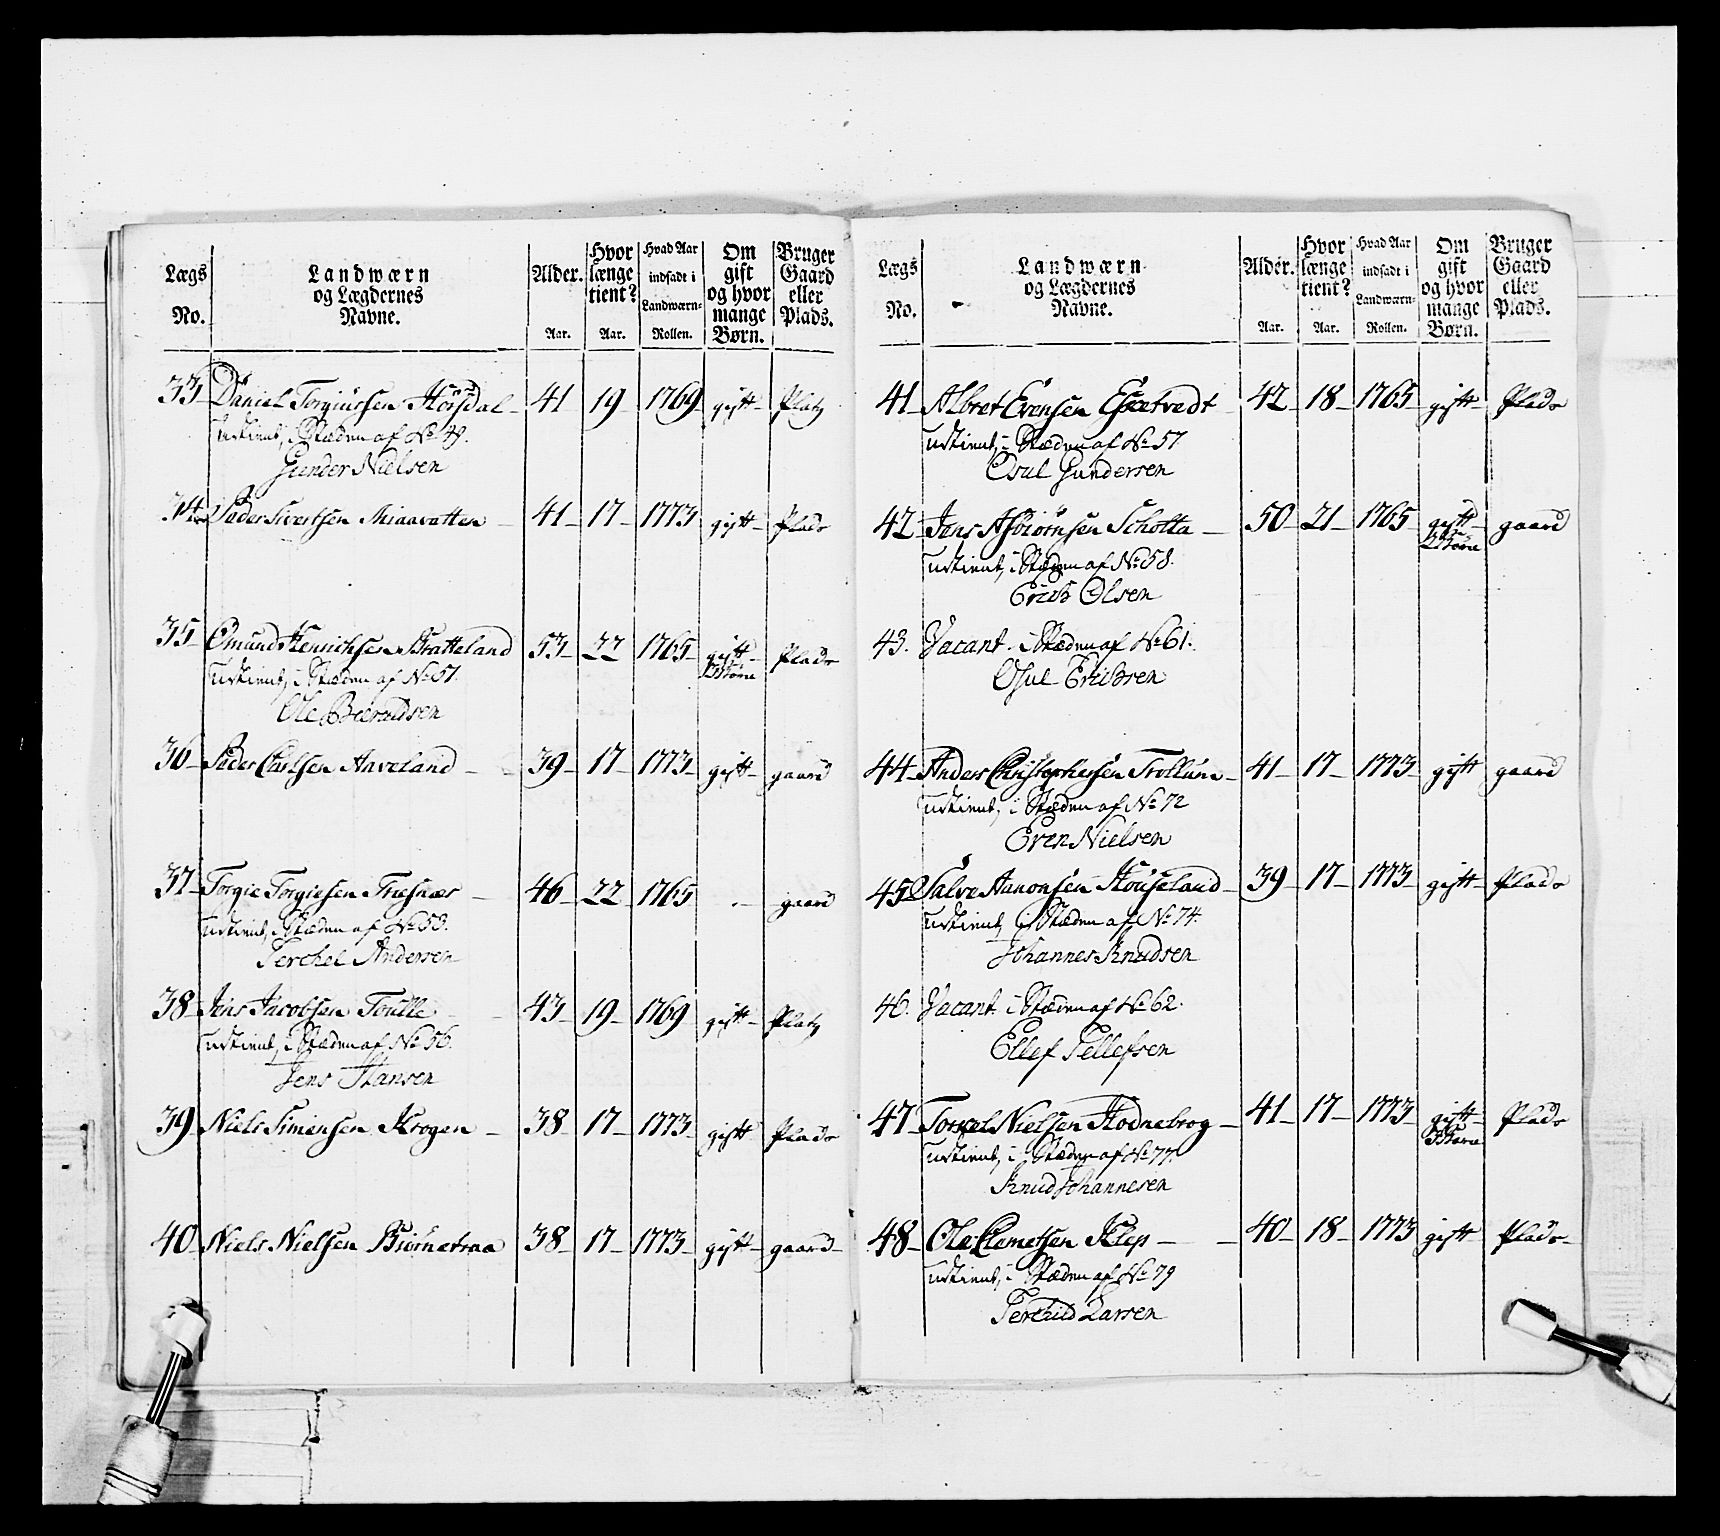 Lægs No. | Landwærn og Lægdernes Navne. | Alder. Aar. | Hvor længe tient? Aar. | Hvad Aar indsadt i Landwærn-Rollen. | Om gift og hvor mange Børn. | Bruger Gaard eller Plads.
33 Daniel Torgiursen Hörsdal 41 19 1769 gift Platz
udtient, i Stæden af No 49.
Gunder Nielsen
34 Peder Sivertsen Miaavatten 41 17 1773 gift Plads
35 Omund Henrichsen Bratteland 53 22 1765 gift Børn Plads
udtient, i Stæden af No 51.
Ole
36 Peder Carlsen Aaveland 39 17 1773 gift gaard
37 Torgie Torgiesen Tresnæs 46 22 1765 - gaard
udtient, i Stæden af No 53.
Terchel Andersen
38 Jens Jacobsen 43 19 1769 gift Platz
udtient, i Stæden af No 56.
Jens Hansen
39 Niels Simensen Krogen 38 17 1773 gift Plads
40 Niels Nielsen Biörnetraa 38 17 1773 gift gaard
Lægs No. | Landwærn og Lægdernes Navne. | Alder. Aar. | Hvor længe tient? Aar. | Hvad Aar indsadt i Landwærn-Rollen. | Om gift og hvor mange Børn. | Bruger Gaard eller Plads.
41 Albret Evensen 42 18 1765 gift Plads
udtient, i Stæden af No 57
Osul Gundersen
42 Jens Asbiörnsen Scholta 50 21 1765 gift 2 Børn gaard
udtient, i Stæden af No 58.
Erich Olsen
43. Vacant. i Stæden af No 61.
Osul Erichsen
44 Anders Christophersen Trollum 41 17 1773 gift gaard
udtient, i Stæden af No 72
Even Nielsen
45 Salve Aanonsen Houseland 39 17 1773 gift Plads
udtient, i Stæden af No 74.
Johannes Knudsen
46. Vacant. i Stæden af No 62.
Ellef Tellefsen
47 Torkel Nielsen Hodnebrog 41 17 1773 gift Børn Plads
udtient, i Stæden af No 77.
Knud Johannesen
48 Ole Clemetsen Klep 40 18 1773 gift Plads
udtient, i Stæden af No 79
Terchild Larsen